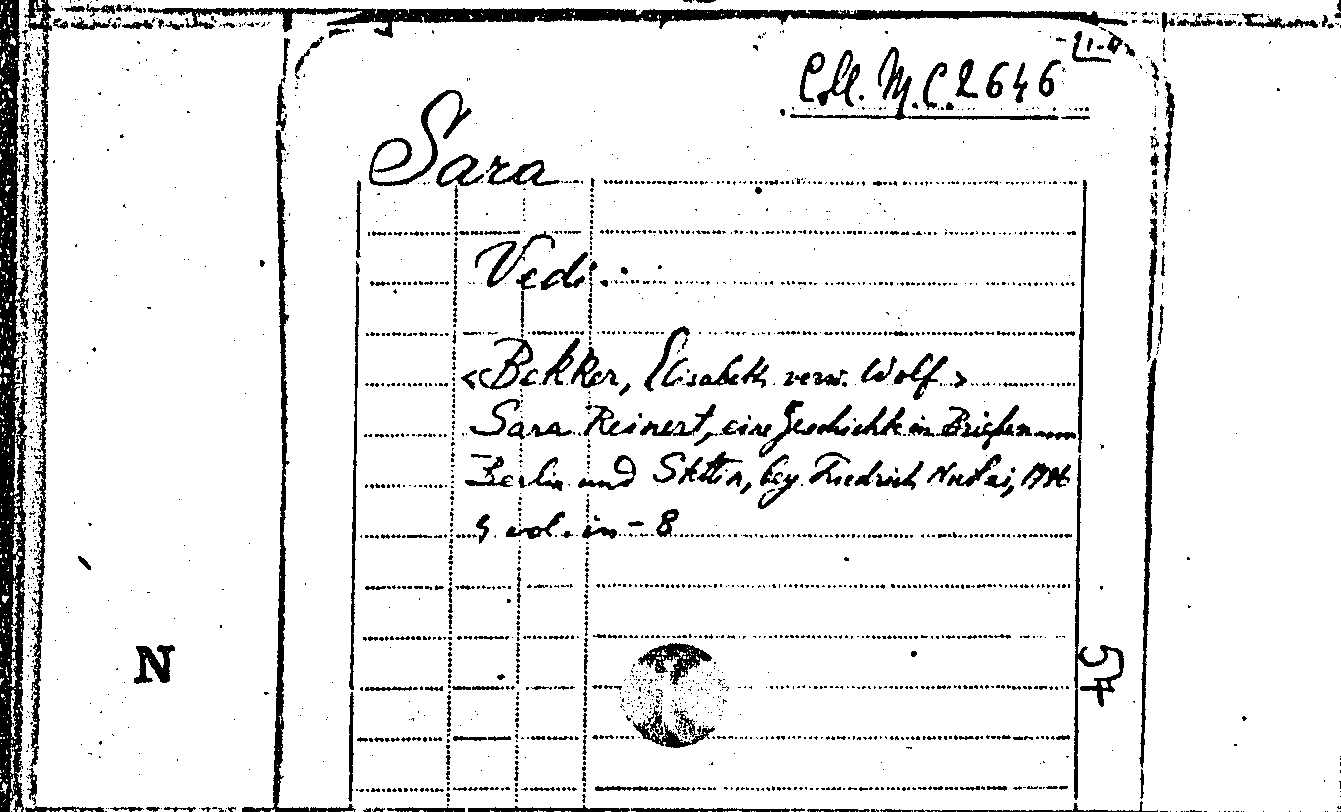 Coll. M.C. 2646
Sara
Vedi:
<Bekker, Elisabeth verw. Wolf>
Sara Reinert, eine Geschichte in Briefen
Berlin und Stettin, bey Friedrich Nicolai, 1796
4 vol. in-8
N
57